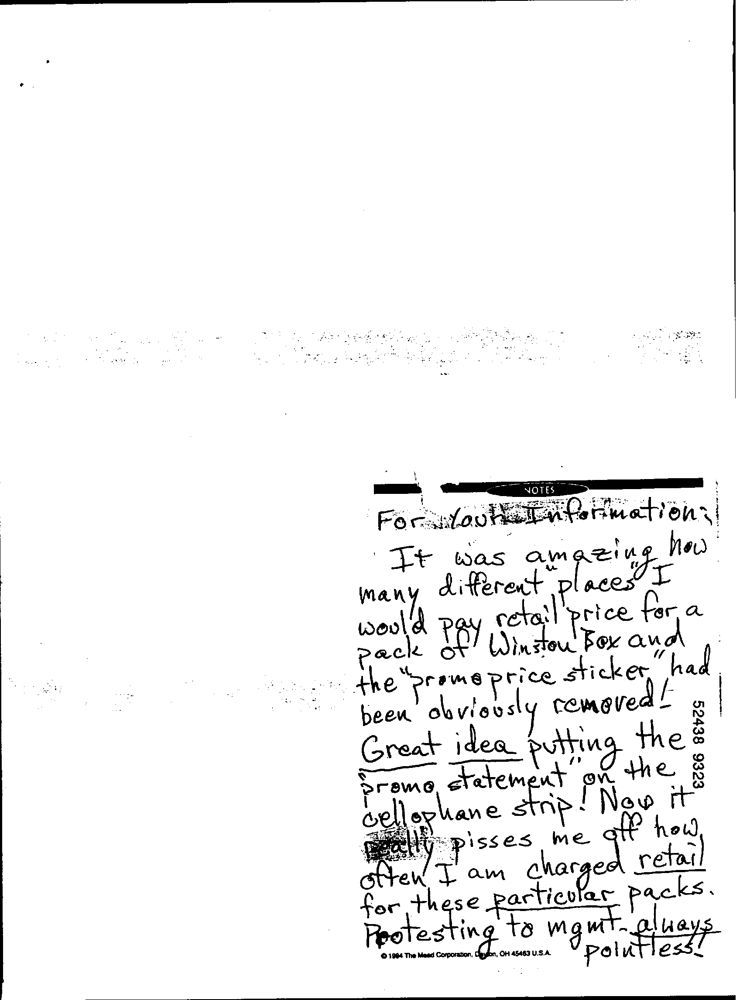 NOTES
For Your Information:
It was amazing how
many different "places" I
would pay retail price for a
pack of Winston Box and
the "promo price sticker" had
been obviously removed!
Great idea putting the
"promo statement" on the
cellophane strip! Now it
really pisses me off how
often I am charged retail
for these particular packs.
Protesting to mgmt. always
pointless!
© 1984 The Mead Corporation, Dayton, OH 45463 U.S.A.
52438 9323